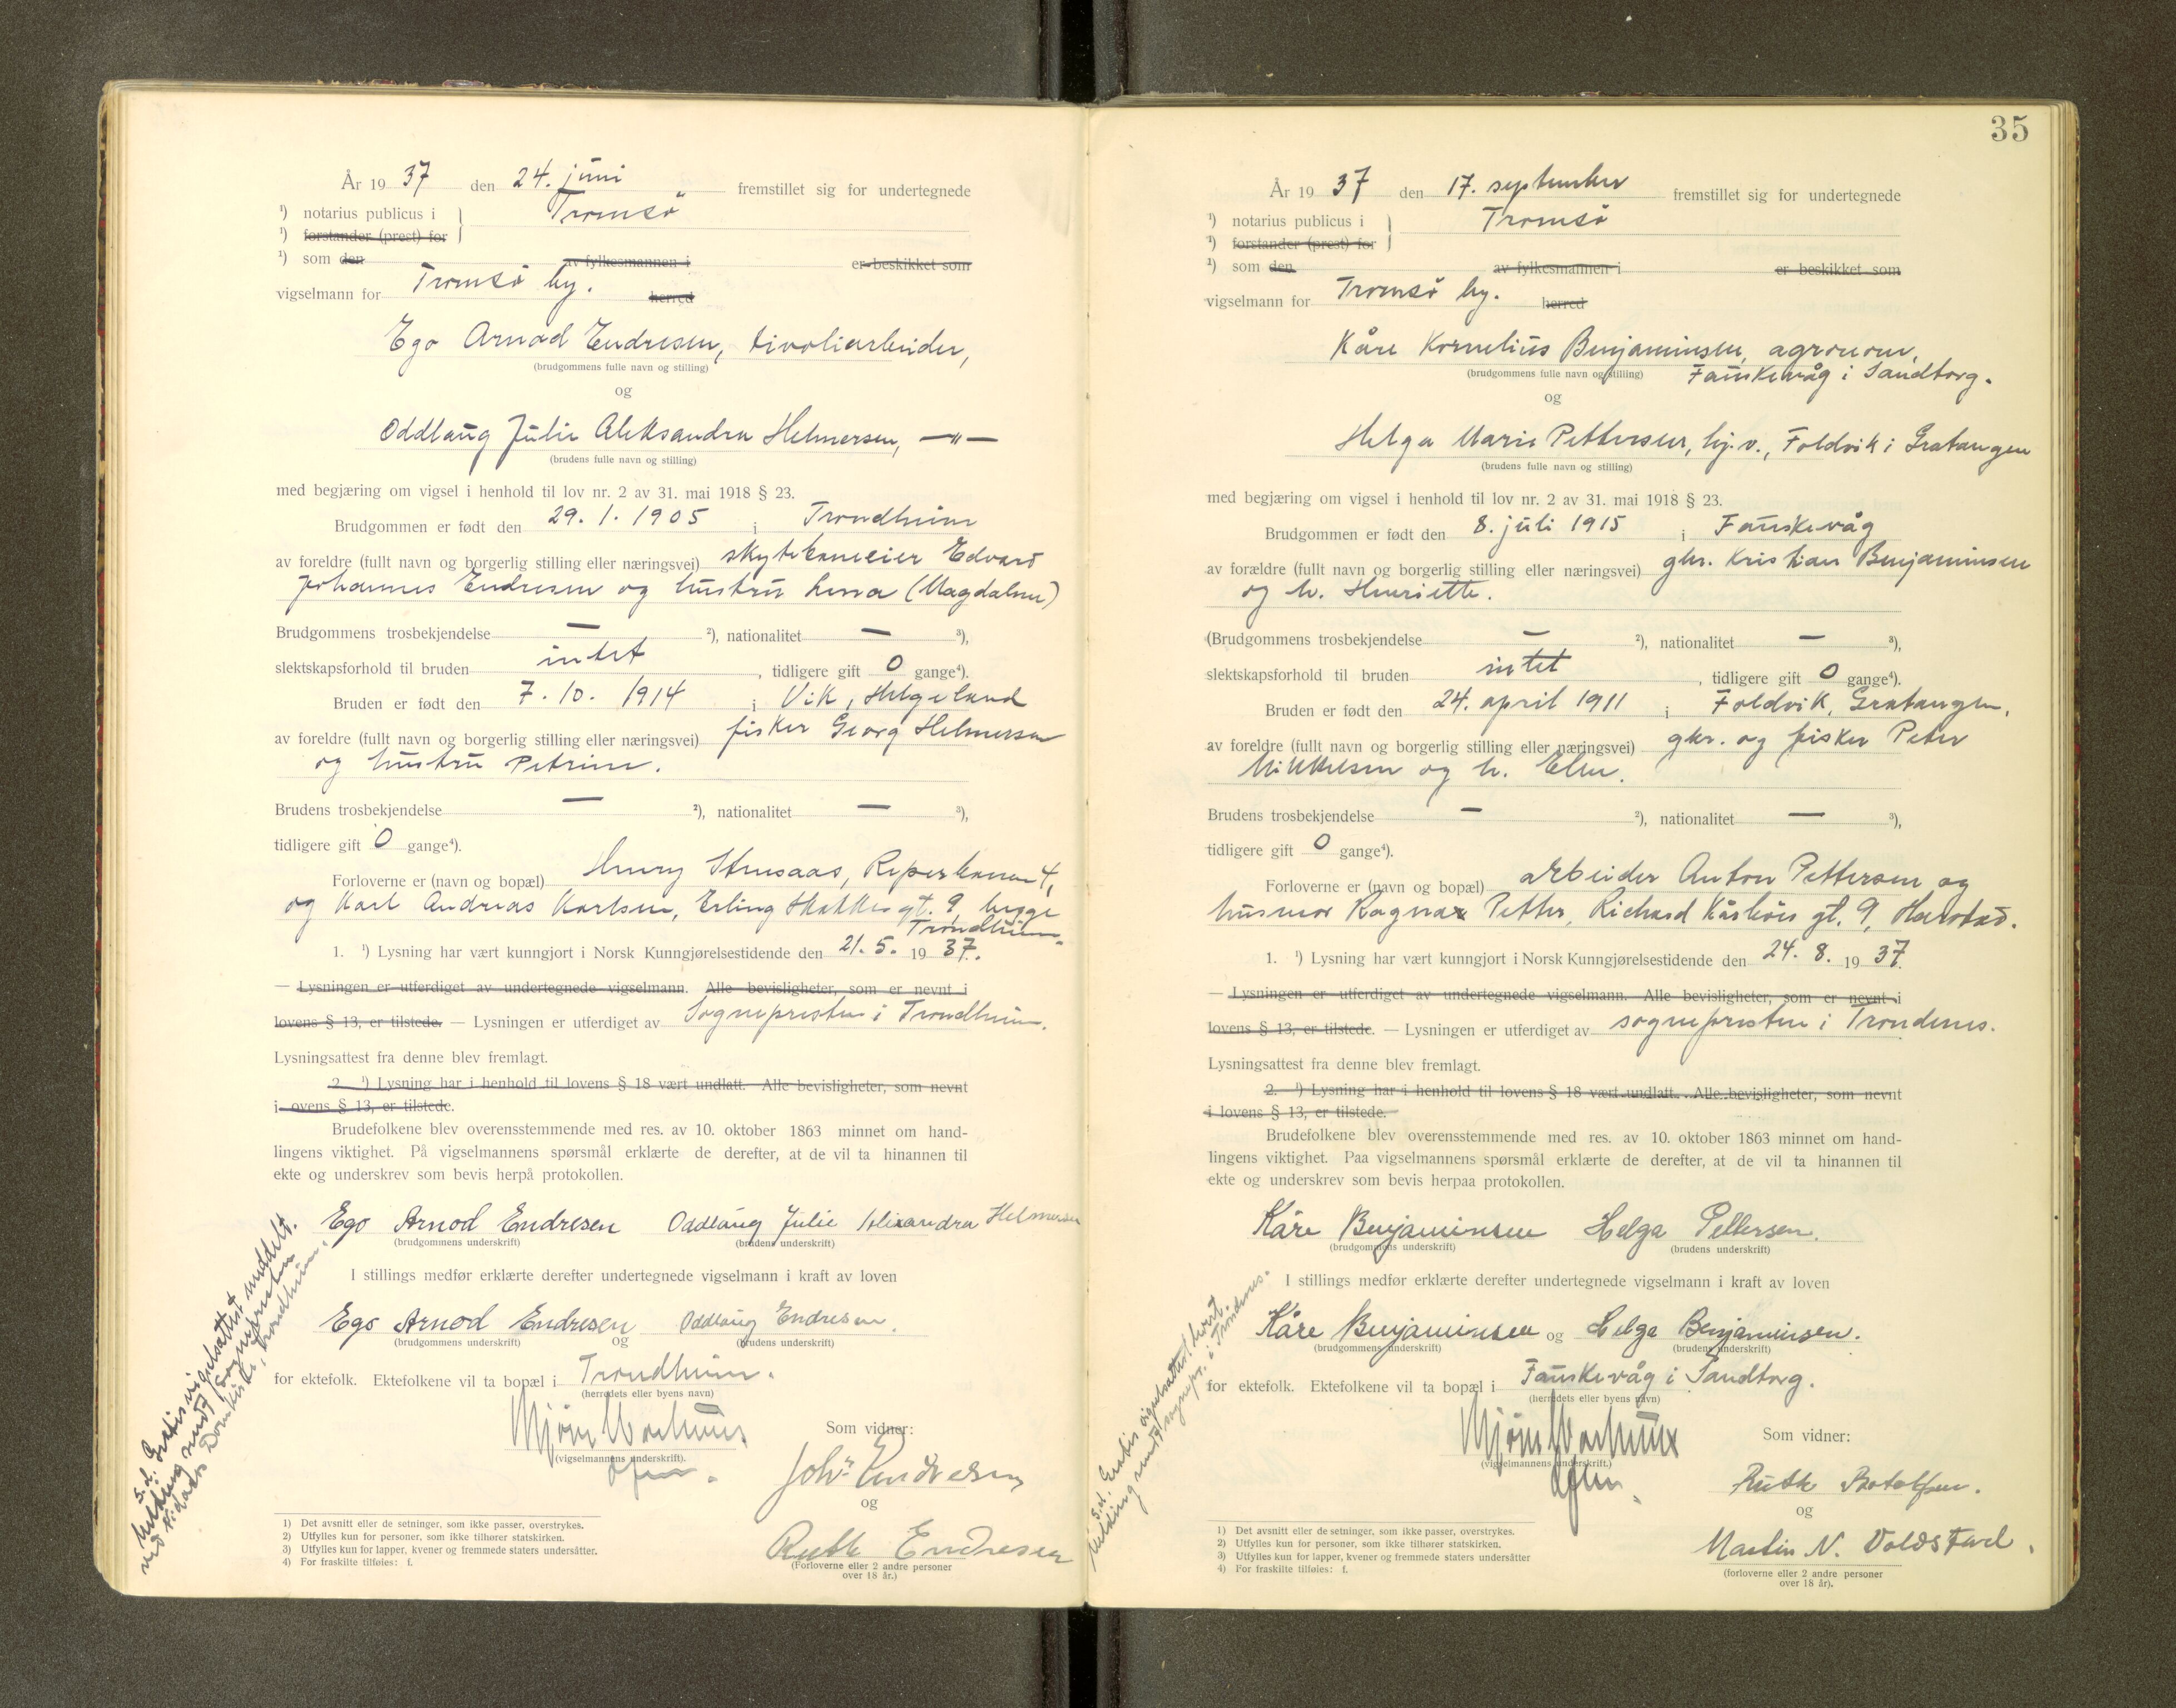 År 19 37 den 24. juni fremstillet sig for undertegnede
¹) notarius publicus i Tromsø
¹) forstander (prest) for
¹) som den av fylkesmannen i er beskikket som
vigselmann for Tromsø by. herred
Ego Arnod Endresen, tivoliarbeider,
(brudgommens fulle navn og stilling)
og
Oddlaug Julie Aleksandra Helmersen, —"—
(brudens fulle navn og stilling)
med begjæring om vigsel i henhold til lov nr. 2 av 31. mai 1918 § 23.
Brudgommen er født den 29. 1. 1905 i Trondheim
av foreldre (fullt navn og borgerlig stilling eller næringsvei) skytebaneeier Edvard
Johannes Endresen og hustru (Magdalene)
Brudgommens trosbekjendelse — ²), nationalitet — ³),
slektskapsforhold til bruden intet, tidligere gift 0 gange⁴).
Bruden er født den 7. 10. 1914 i Vik, Helgeland
av foreldre (fullt navn og borgerlig stilling eller næringsvei) fisker Georg Helmersen
og hustru Petrine.
Brudens trosbekjendelse — ²), nationalitet — ³),
tidligere gift 0 gange⁴).
Forloverne er (navn og bopæl) Henry Stensaas, Reperbanen 4,
og Karl Andreas Karlsen, Erling Skakkes gt. 9, begge
Trondheim.
1. ¹) Lysning har vært kunngjort i Norsk Kunngjørelsestidende den 21. 5. 19 37.
— Lysningen er utferdiget av undertegnede vigselmann. Alle bevisligheter, som er nevnt i
lovens § 13, er tilstede. — Lysningen er utferdiget av Sognepresten i Trondheim.
Lysningsattest fra denne blev fremlagt.
2. ¹) Lysning har i henhold til lovens § 18 vært undlatt. Alle bevisligheter, som nevnt
i lovens § 13, er tilstede.
Brudefolkene blev overensstemmende med res. av 10. oktober 1863 minnet om hand-
lingens viktighet. På vigselmannens spørsmål erklærte de derefter, at de vil ta hinannen til
ekte og underskrev som bevis herpå protokollen.
Ego Arnod Endresen Oddlaug Julie Alixandra Helmersen
(brudgommens underskrift) (brudens underskrift)
I stillings medfør erklærte derefter undertegnede vigselmann i kraft av loven
Ego Arnod Endresen og Oddlaug Endresen.
(brudgommens underskrift) (brudens underskrift)
for ektefolk. Ektefolkene vil ta bopæl i Trondheim.
(herredets eller byens navn)
Som vidner:
(vigselmannens underskrift).
Johs Endresen
og
Ruth Endresen
(Forloverne eller 2 andre personer
over 18 år.)
S.d. Gratis vigselsattest meddelt.
Melding sendt sognepresten
ved Nidaros Domkirke, Trondheim.
1) Det avsnitt eller de setninger, som ikke passer, overstrykes.
2) Utfylles kun for personer, som ikke tilhører statskirken.
3) Utfylles kun for lapper, kvener og fremmede staters undersåtter.
4) For fraskilte tilføies: f.
35
År 19 37 den 17. september fremstillet sig for undertegnede
¹) notarius publicus i Tromsø
¹) forstander (prest) for
¹) som den av fylkesmannen i er beskikket som
vigselmann for Tromsø by. herred
Kåre Kornelius Benjaminsen, agronom,
(brudgommens fulle navn og stilling) Fauskevåg i Sandtorg.
og
Helga Marie Pettersen, hj.v., Foldvik i Gratangen
(brudens fulle navn og stilling)
med begjæring om vigsel i henhold til lov nr. 2 av 31. mai 1918 § 23.
Brudgommen er født den 8. juli 1915 i Fauskevåg
av forældre (fullt navn og borgerlig stilling eller næringsvei) gbr. Kristian Benjaminsen
og h. Henriette.
(Brudgommens trosbekjendelse — ²), nationalitet — ³),
slektskapsforhold til bruden intet, tidligere gift 0 gange⁴).
Bruden er født den 24. april 1911 i Foldvik, Gratangen,
av foreldre (fullt navn og borgerlig stilling eller næringsvei) gbr. og fisker Peter
Mikkelsen og h. Elen.
Brudens trosbekjendelse — ²), nationalitet — ³),
tidligere gift 0 gange⁴).
Forloverne er (navn og bopæl) arbeider Anton Pettersen og
husmor Ragna Petter, Richard Kårbøs gt. 9, Harstad.
1. ¹) Lysning har vært kunngjort i Norsk Kunngjørelsestidende den 24. 8. 19 37.
— Lysningen er utferdiget av undertegnede vigselmann. Alle bevisligheter, som er nevnt i
lovens § 13, er tilstede. — Lysningen er utferdiget av sognepresten i Trondenes.
Lysningsattest fra denne blev fremlagt.
2. ¹) Lysning har i henhold til lovens § 18 vært undlatt. Alle bevisligheter, som nevnt
i lovens § 13, er tilstede.
Brudefolkene blev overensstemmende med res. av 10. oktober 1863 minnet om hand-
lingens viktighet. Paa vigselmannens spørsmål erklærte de derefter, at de vil ta hinannen til
ekte og underskrev som bevis herpaa protokollen.
Kåre Benjaminsen Helga Pettersen.
(brudgommens underskrift) (brudens underskrift)
I stillings medfør erklærte derefter undertegnede vigselmann i kraft av loven
Kåre Benjaminsen og Helga Benjaminsen.
(brudgommens underskrift) (brudens underskrift)
for ektefolk. Ektefolkene vil ta bopæl i Fauskevåg i Sandtorg.
(herredets eller byens navn)
Som vidner:
(vigselmannens underskrift.)
Ruth Botolfsen.
og
Martin N. Voldstad.
(forloverne eller 2 andre personer
over 18 år).
S.d. Gratis vigselsattest
Melding sendt sognepr. i Trondenes.
1) Det avsnitt eller de setninger, som ikke passer, overstrykes.
2) Utfylles kun for personer, som ikke tilhører statskirken.
3) Utfylles kun for lapper, kvener og fremmede staters undersåtter
4) For fraskilte tilføies: f.